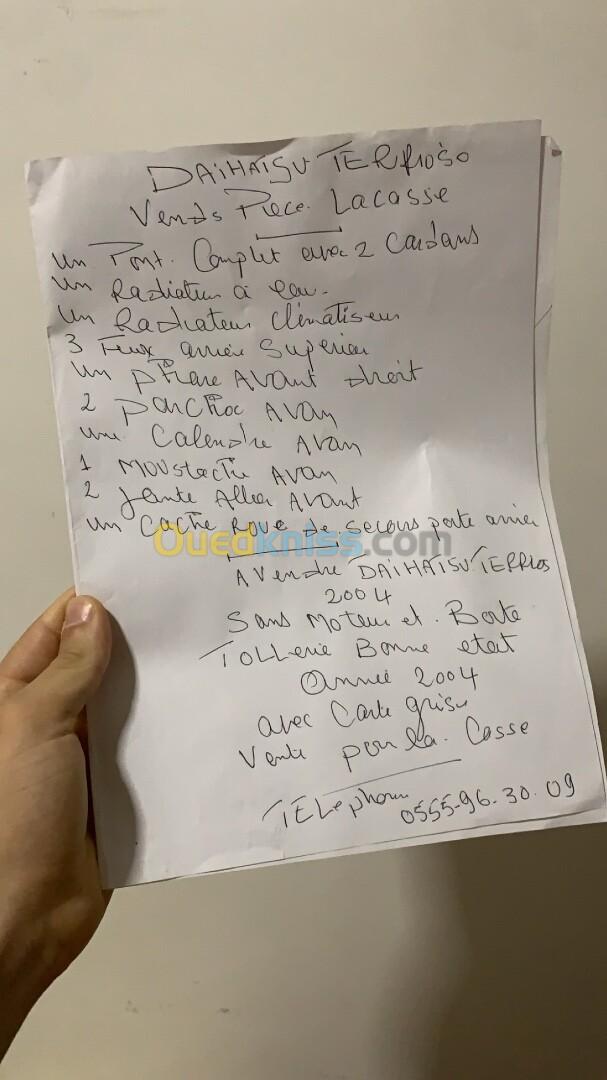 DAIHATSU TERRIOSO
Vends Piece. Lacasse
un Pont. Complet avec 2 Cardans
un Radiateur a eau.
un Radiateur climatiseur
3 Feux arriere Superieur
un phare Avant droit
2 parchoc Avan
une Calendre Avan
1 Moustache Avan
2 Jante Allier Avant
un cache Roue de secours porte arrier
Ouedkniss.com
A vendre DAIHATSU TERRIOS
2004
Sans Moteur et. Boite
Tollerie Bonne etat
Année 2004
avec Carte grise
Vente pour la. Casse
Telephone 0555-96.30.09